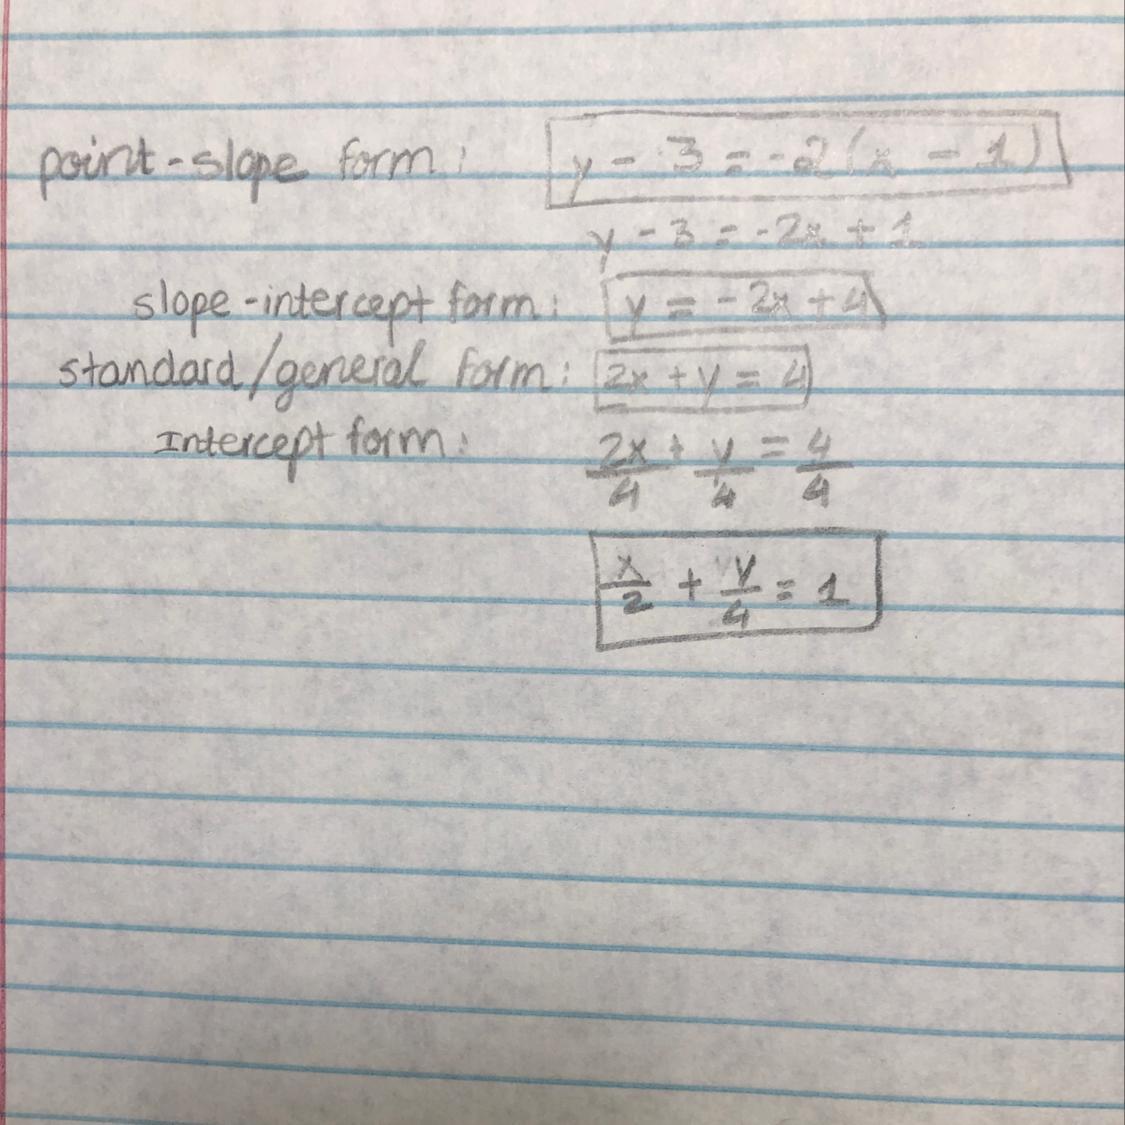 point-slope form: y - 3 = -2(x - 1)
y - 3 = -2x + 1
slope-intercept form: y = -2x + 4
standard/general form: 2x + y = 4
Intercept form: 2x/4 + y/4 = 4/4
x/2 + y/4 = 1